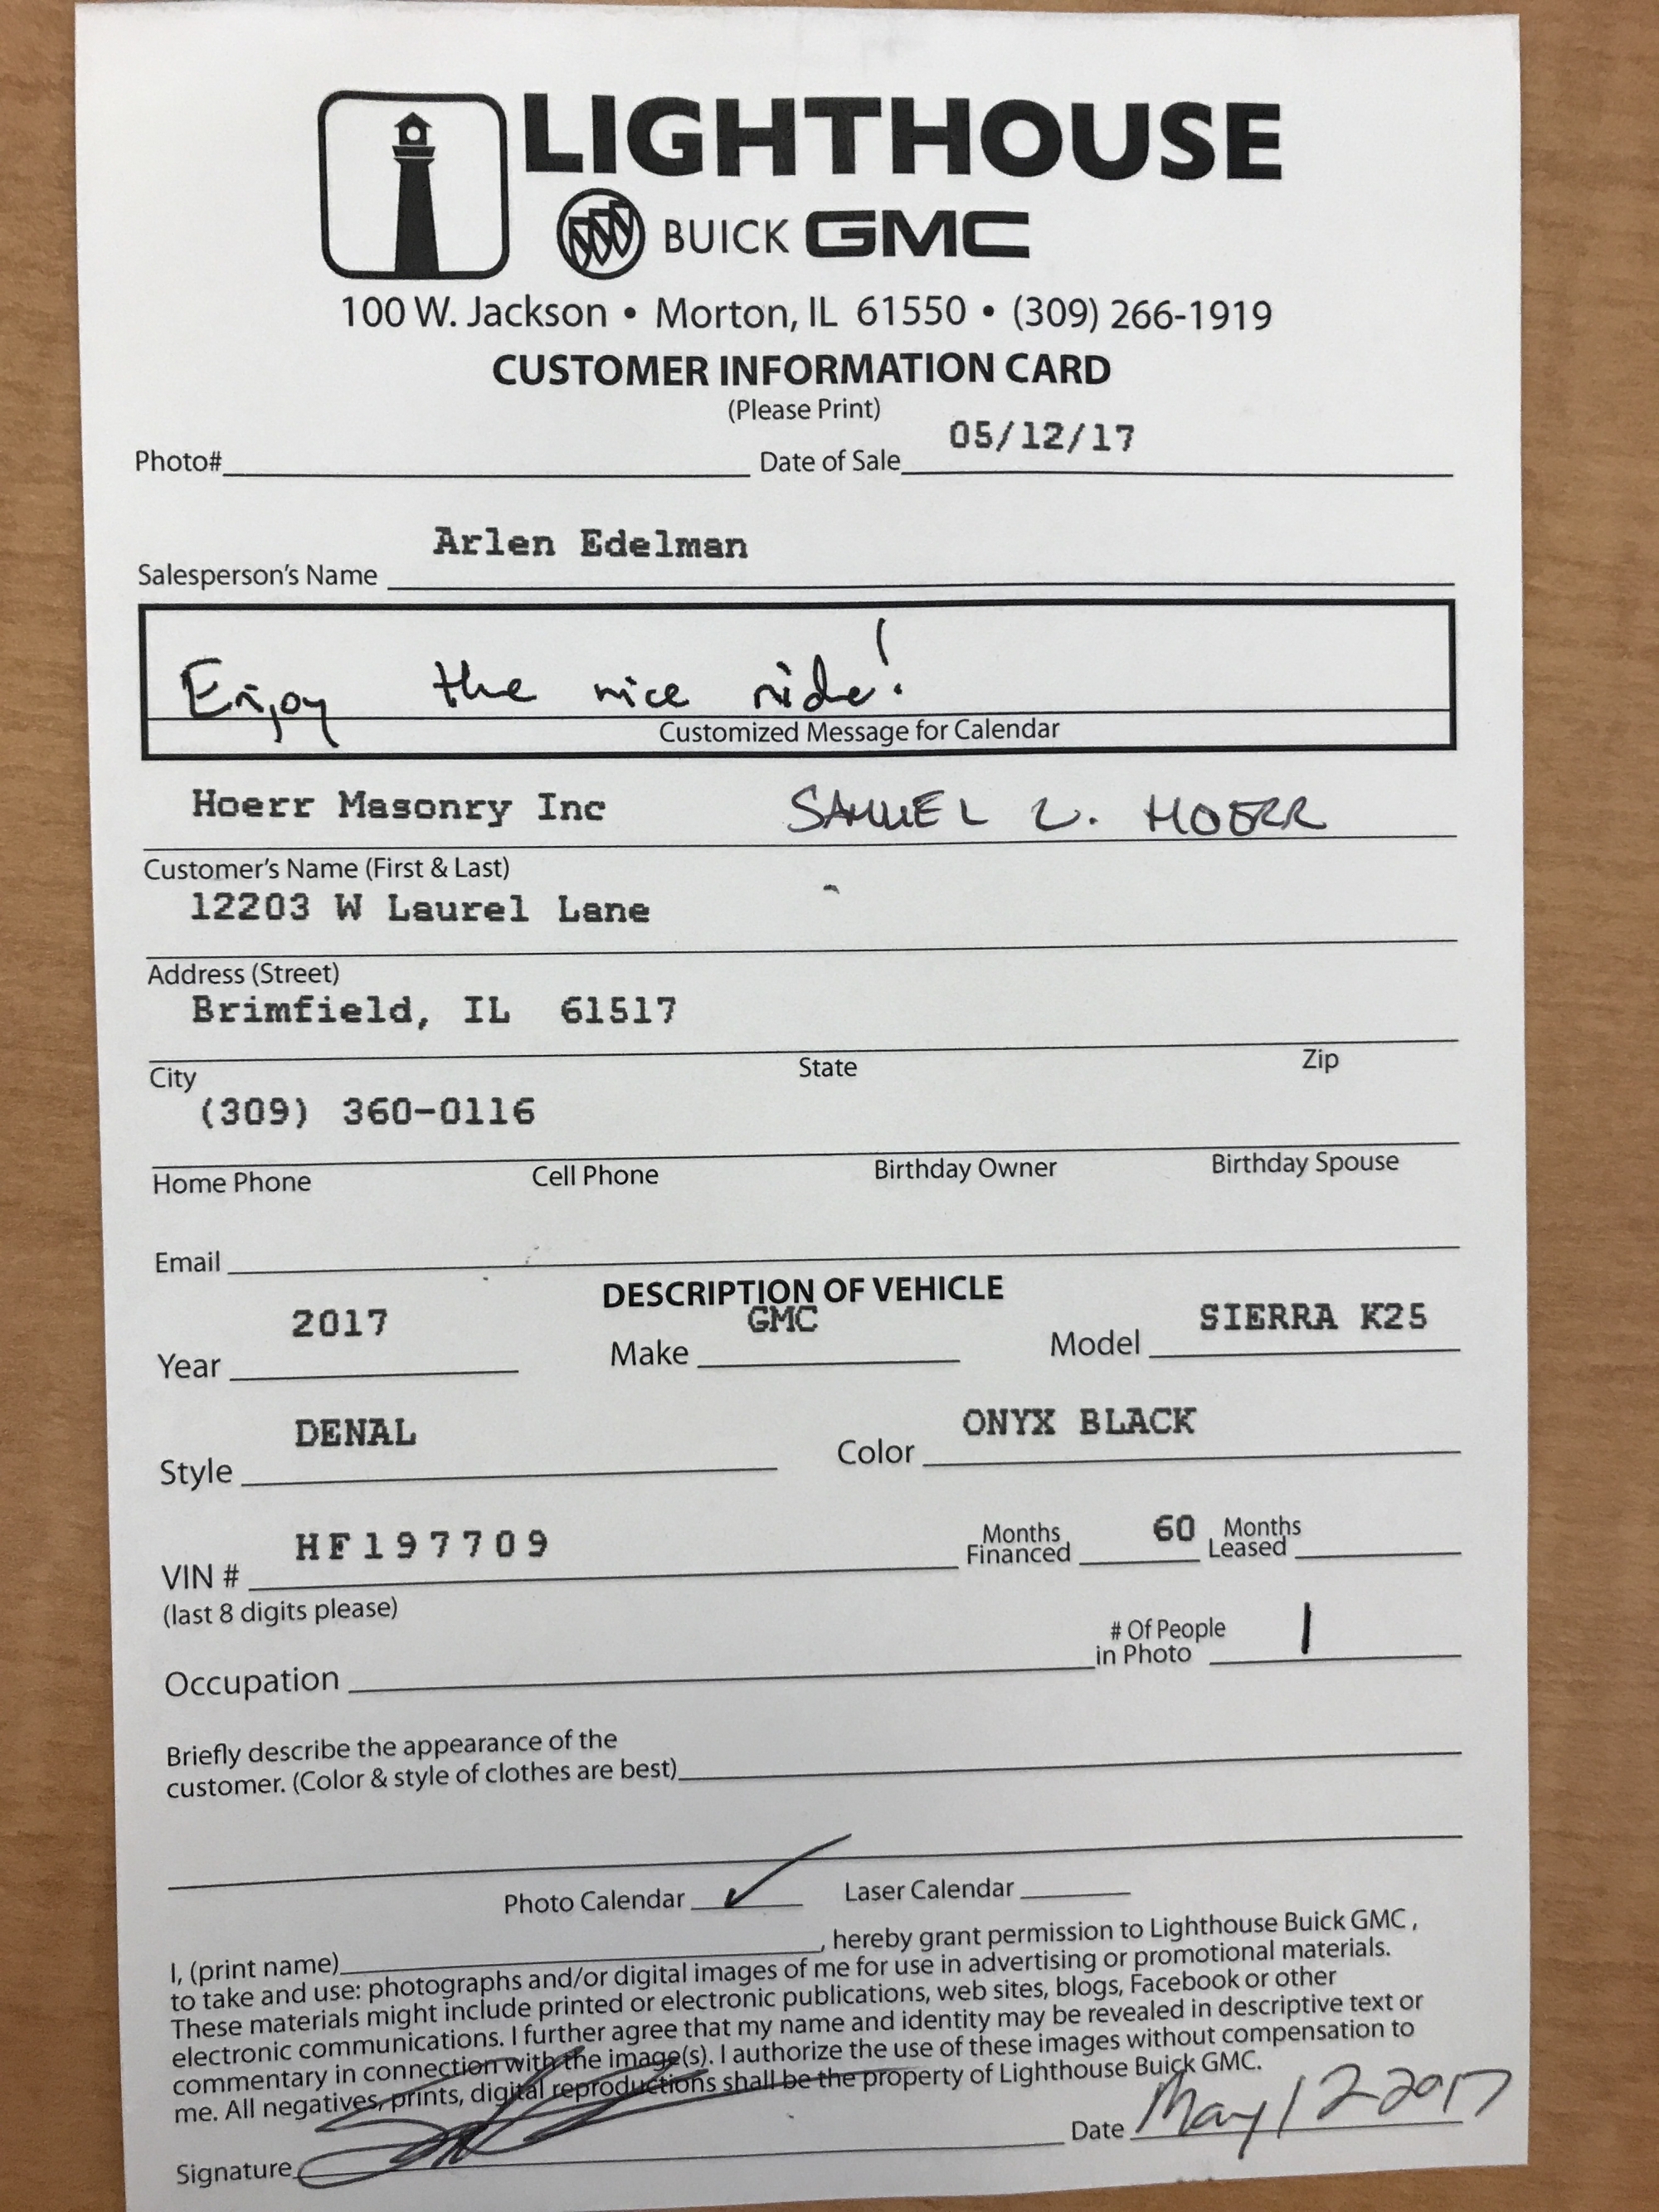 LIGHTHOUSE
BUICK GMC
100 W. Jackson • Morton, IL 61550 • (309) 266-1919
CUSTOMER INFORMATION CARD
(Please Print)
Photo# Date of Sale 05/12/17
Salesperson's Name Arlen Edelman
Enjoy the nice ride!
Customized Message for Calendar
Hoerr Masonry Inc SAMUEL L. HOERR
Customer's Name (First & Last)
12203 W Laurel Lane
Address (Street)
Brimfield, IL 61517
City State Zip
(309) 360-0116
Home Phone Cell Phone Birthday Owner Birthday Spouse
Email
DESCRIPTION OF VEHICLE
Year 2017 Make GMC Model SIERRA K25
Style DENAL Color ONYX BLACK
VIN # HF197709 Months Financed 60 Months Leased
(last 8 digits please)
Occupation # Of People in Photo 1
Briefly describe the appearance of the
customer. (Color & style of clothes are best)
Photo Calendar ✓ Laser Calendar
I, (print name) , hereby grant permission to Lighthouse Buick GMC ,
to take and use: photographs and/or digital images of me for use in advertising or promotional materials.
These materials might include printed or electronic publications, web sites, blogs, Facebook or other
electronic communications. I further agree that my name and identity may be revealed in descriptive text or
commentary in connection with the image(s). I authorize the use of these images without compensation to
me. All negatives, prints, digital reproductions shall be the property of Lighthouse Buick GMC.
Signature Date May 12 2017